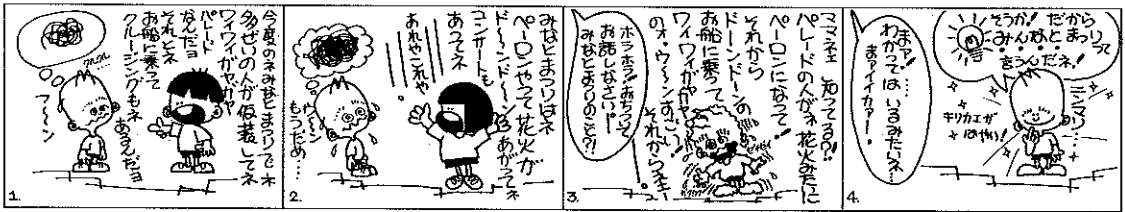 今度のネみなとまつりでネ
多ぜいの人が仮装してネ
ワイワイガヤガヤ
パレード
なんだョ
それとネ
お船に乗って
クルージングもネ
あるんだョ
フ〜ン
1.
みなとまつりはネ
ペーロンやって花火が
ド〜ンド〜ンあがってネ
コンサートも
あってネ
あれやこれや
もうだめ…
2.
ママネェ 知ってる?!
パレードの人がネ 花火みたに
ペーロンになって!
それから
ドーンドーンの
お船に乗って
ワイワイガヤガヤ
それからネェ!
ホラホラ!! おちついて
お話しなさい!
みなとまつりのこと?!
3.
そうか! だから
みんなとまつりって
言うんだネ!
ニンマリ……
キリカエが
はやい!
まァ!
わかってはいるみたいネ…
まァイイカァー!
4.